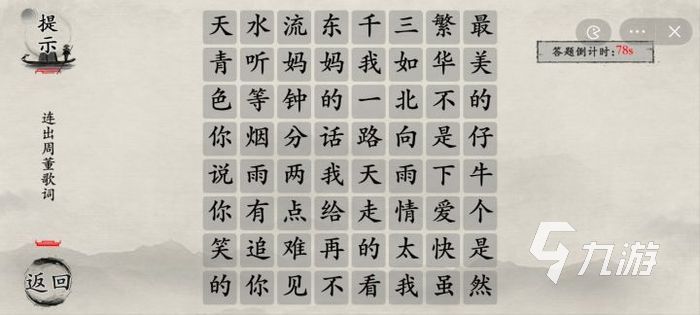 提示
连出周董歌词
返回
天水流东千三繁最
青听妈妈我如华美
色等钟的一北不的
你烟分话路向是仔
说雨两我天雨下牛
你有点给走情爱个
笑追难再的太快是
的你见不看我虽然
答题倒计时:78s
九游